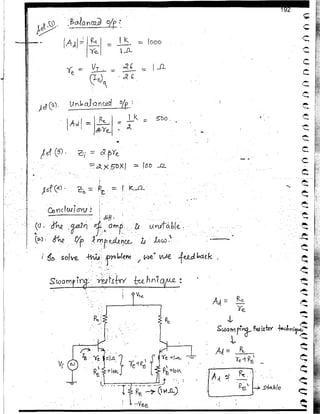 192
Sol.(1). Balanced o/p :
|Ad| = |Rc/re| = 1k/1Ω = 1000
re = VT/(IE)q = 26/26 = 1Ω
Sol(2). Unbalanced o/p :
|Ad| = |Rc/2re| = 1k/2 = 500.
Sol(3). Zi = 2βre
= 2×50×1 = 100 Ω
Sol(4). Zo = Rc = 1 KΩ
Conclusions :
(1). The gain of diff. amp. is unstable.
(2). The i/p impedance is low.
So solve this problem, we use feedback.
Swamping resistor technique :
Vcc
Rc
Rc
Ad = Rc/re
Swamping Resistor technique
Ad = Rc/(re+RE')
Ad = Rc/RE' → stable
Vi
RE (1MΩ)
-VEE